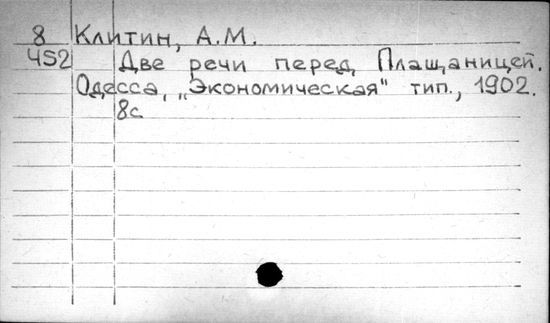 8 Клитин, А.М.
452 Две речи перед Плащаницей.
Одесса, „Экономическая" тип., 1902.
8с